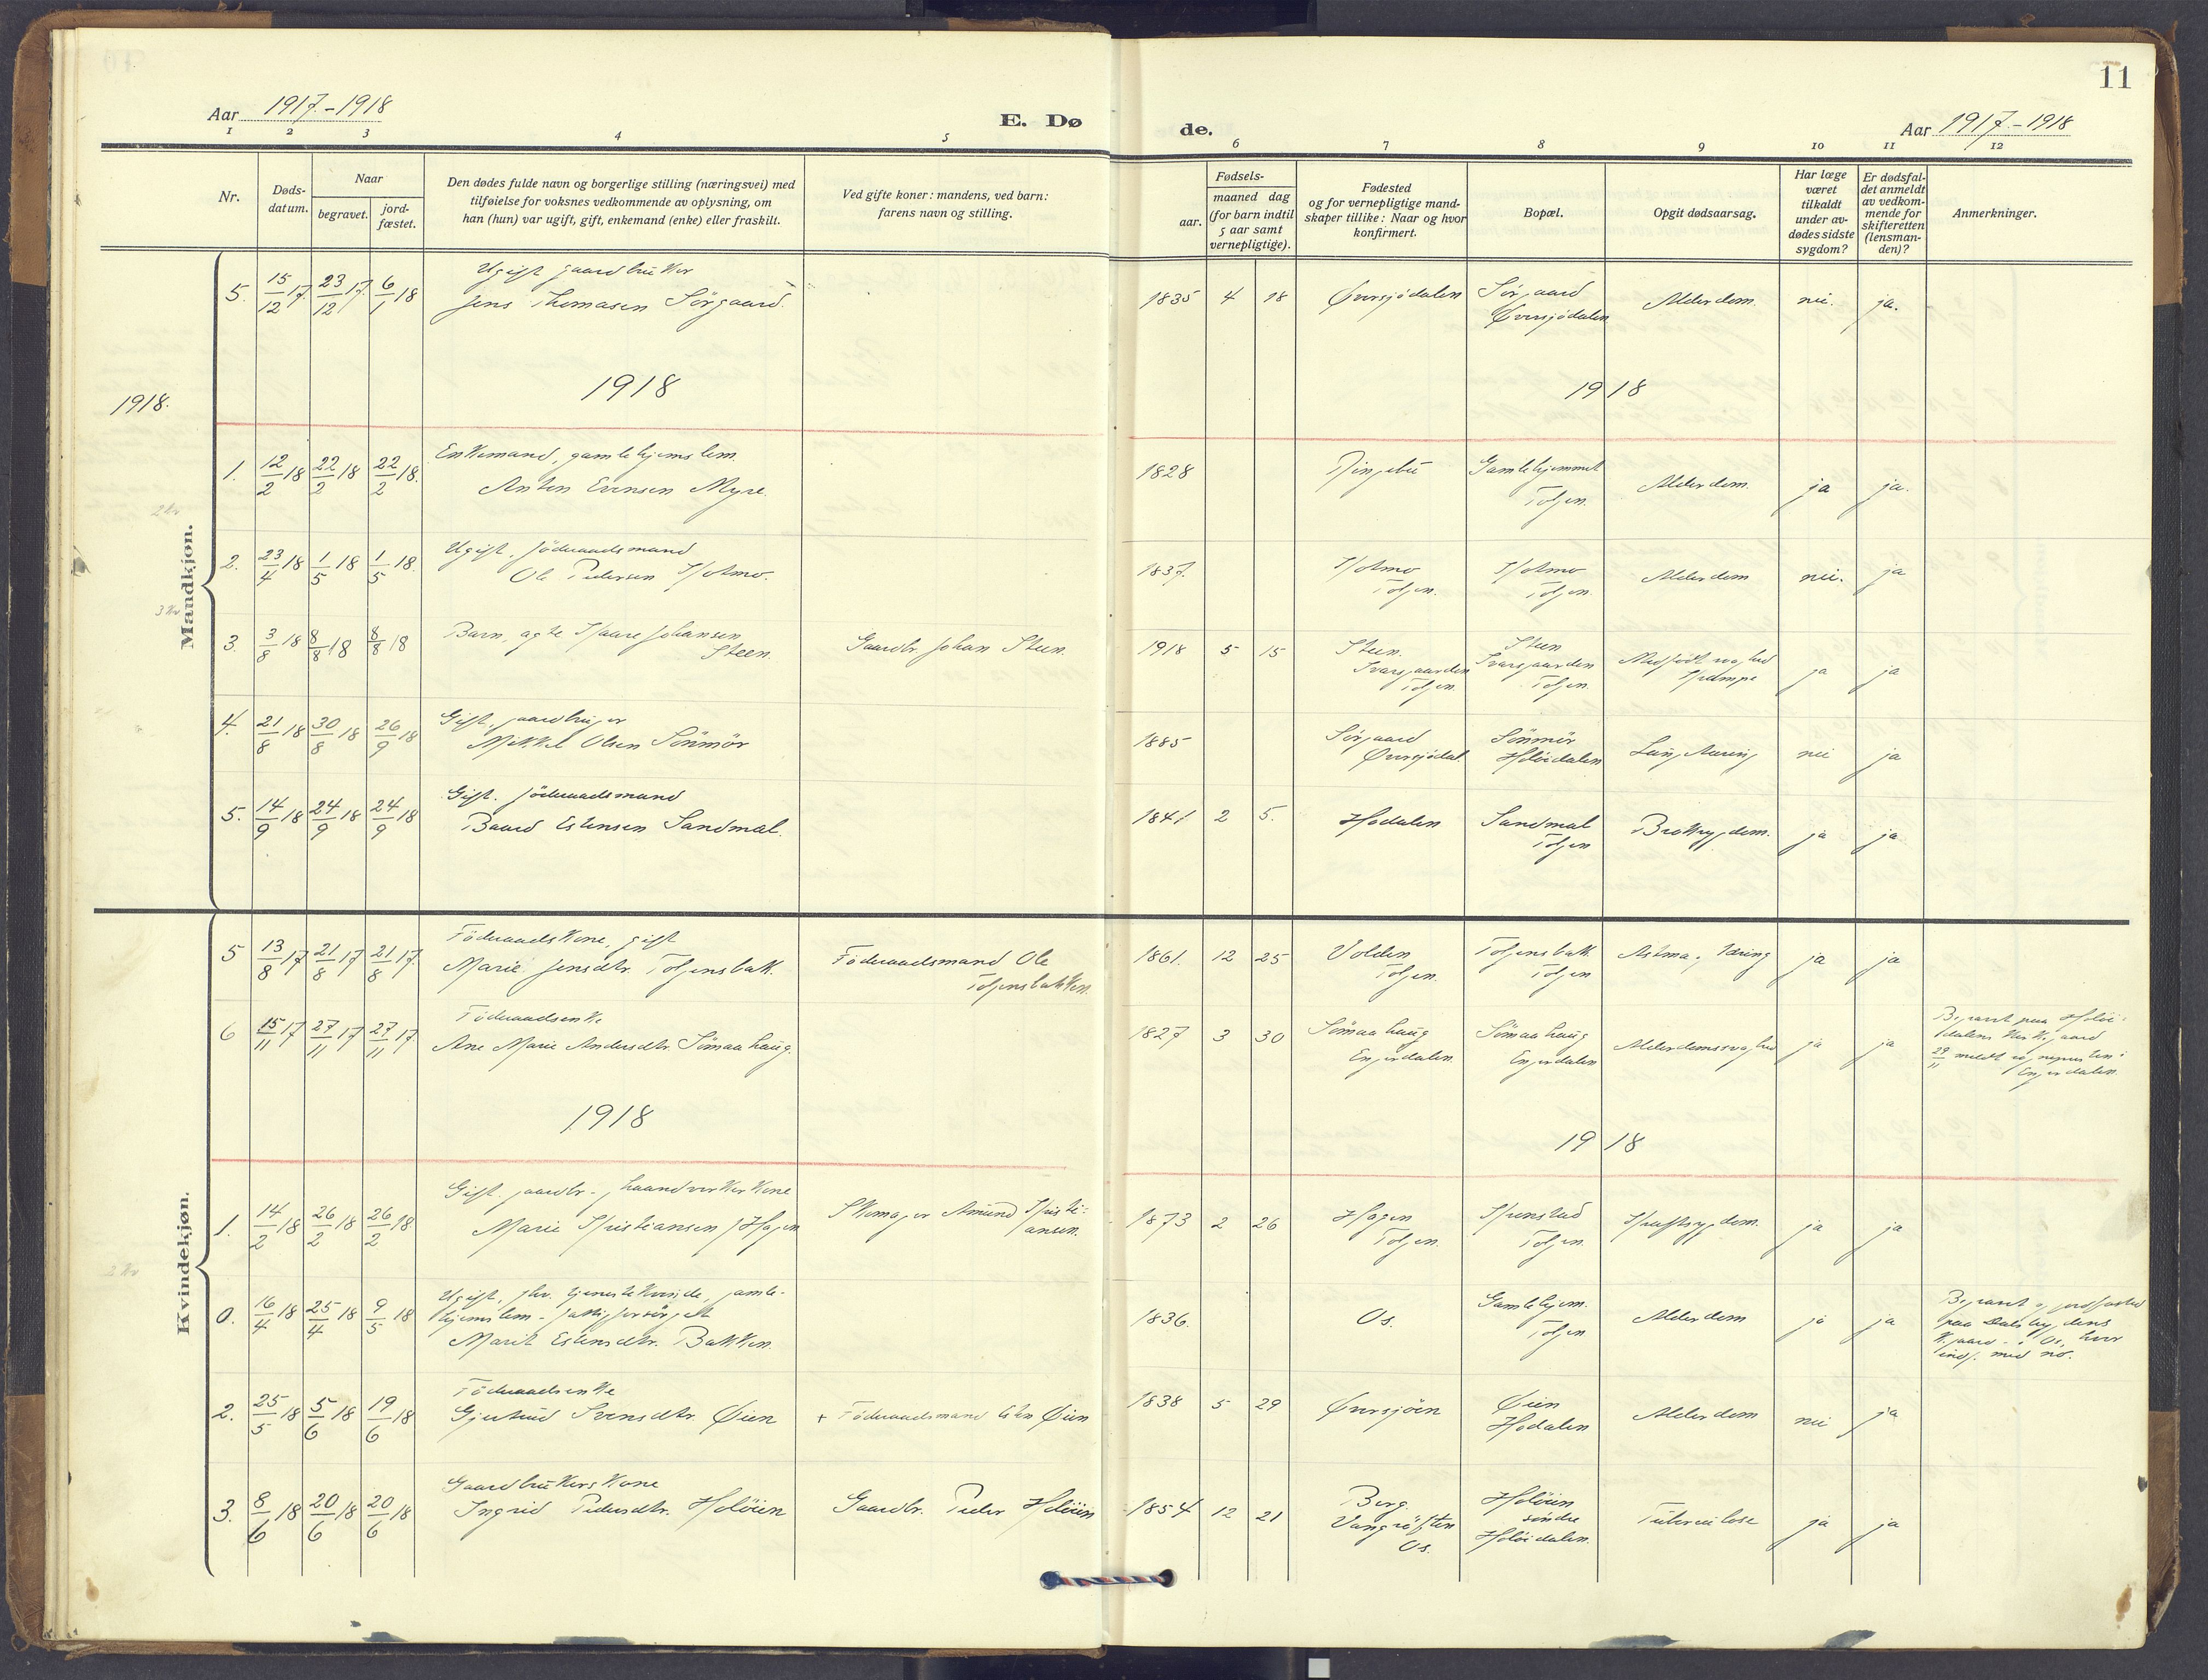 11
Aar 1917.-1918
E. Dø
de.
Aar 1917.-1918
1 2 3 4 5 6 7 8 9 10 11 12
Nr.
Døds-
datum.
Naar
begravet.
jord-
fæstet.
Den dødes fulde navn og borgerlige stilling (næringsvei) med
tilføielse for voksnes vedkommende av oplysning, om
han (hun) var ugift, gift, enkemand (enke) eller fraskilt.
Ved gifte koner: mandens, ved barn:
farens navn og stilling.
Fødsels-
aar.
maaned dag
(for barn indtil
5 aar samt
vernepligtige).
Fødested
og for vernepligtige mand-
skaper tillike: Naar og hvor
konfirmert.
Bopæl.
Opgit dødsaarsag.
Har læge
været
tilkaldt
under av-
dødes sidste
sygdom?
Er dødsfal-
det anmeldt
av vedkom-
mende for
skifteretten
(lensman-
den)?
Anmerkninger.
Mandkjøn.
5. 15/12 17. 23/12 17. 6/1 18 Ugift gaardbruker
Jens Thomasen Sörgaard. 1835 4 18 Øversjödalen Sörgaard
Øversjödalen Alderdom. nei. ja.
1918. 1918 1918
1. 12/2 18 22/2 18 22/2 18. Enkemand, gamlehjemslem.
Anton Evensen Myre. 1828 Ringebu Gamlehjemmet
Tolgen. Alderdom. ja ja.
2. 23/4 18 1/5 18 1/5 18. Ugift, föderaadsmand
Ole Pedersen Kotmo. 1837. Kotmo
Tolgen. Kotmo
Tolgen. Alderdom nei. ja
3. 3/8 18 8/8 18 8/8 18 Barn, agte Kaare Johansen
Steen. Gaardbr. Johan Steen. 1918 5 15 Steen.
Svargaarden
Tolgen. Steen
Svargaarden
Tolgen. Medfödt svaghed
Krampe ja ja
4. 21/8 18 30/8 18 26/9 18 Gift, gaardbruger
Mikkel Olsen Sönmör 1885 Sörgaard
Øversjödal. Sönmör
Holöidalen Lungetæring nei ja
5. 14/9 18 24/9 18 24/9 18 Gift. föderaadsmand
Baard Estensen Sandmæl. 1841 2 5. Hodalen Sandmæl
Tolgen Broksygdom. ja ja
Kvindekjøn.
5 13/8 17 21/8 17 21/8 17. Föderaadskone, gift
Marie Jensdtr. Tolgensbak. Föderaadsmand Ole
Tolgensbakken. 1861. 12 25 Volden
Tolgen. Tolgensbak.
Tolgen Astma og tæring ja ja
6 15/11 17 27/11 17 27/11 17. Föderaadsenke
Ane Marie Andersdtr. Sömaahaug. 1827 3 30 Sömaahaug
Engerdalen. Sömaahaug
Engerdalen Alderdomssvaghed ja ja Begravet paa Holöi-
dalens kirkegaard
29/11 meldt sognepresten i
Engerdalen.
1918 1918
1. 14/2 18 26/2 18 26/2 18 Gift. gaardbr.- haandverkerkone
Marie Kristiansen f Hagen Skomager Amund Kristi-
ansen. 1873 2 26 Hagen
Tolgen. Kvenstad
Tolgen. Kræftsygdom. ja ja
0. 16/4 18 25/4 18 9/5 18 Ugift, fhv. tjenestekvinde, gamle-
hjemslem - fattigforsörget
Marit Estensdtr. Bakken. 1836. Os. Gamlehjem.
Tolgen Alderdom ja ja Begravet og jordfæstet
paa Dalsbygdens
k.gaard - i Os, hvor
indf. med no.
2. 25/5 18 5/6 18 19/6 18 Föderaadsenke
Gjertrud Svensdtr. Øien + Föderaadsmand Esten Øien 1838 5 29 Øversjöen Øien
Hodalen Alderdom nei ja
3. 8/6 18 20/6 18 20/6 18 Gaardbrukerskone
Ingrid Pedersdtr. Holöien Gaardbr. Peder Holöien 1854 12 21 Berg.
Vangröften
Os. Holöien
söndre
Holöidalen. Tuberculose ja ja